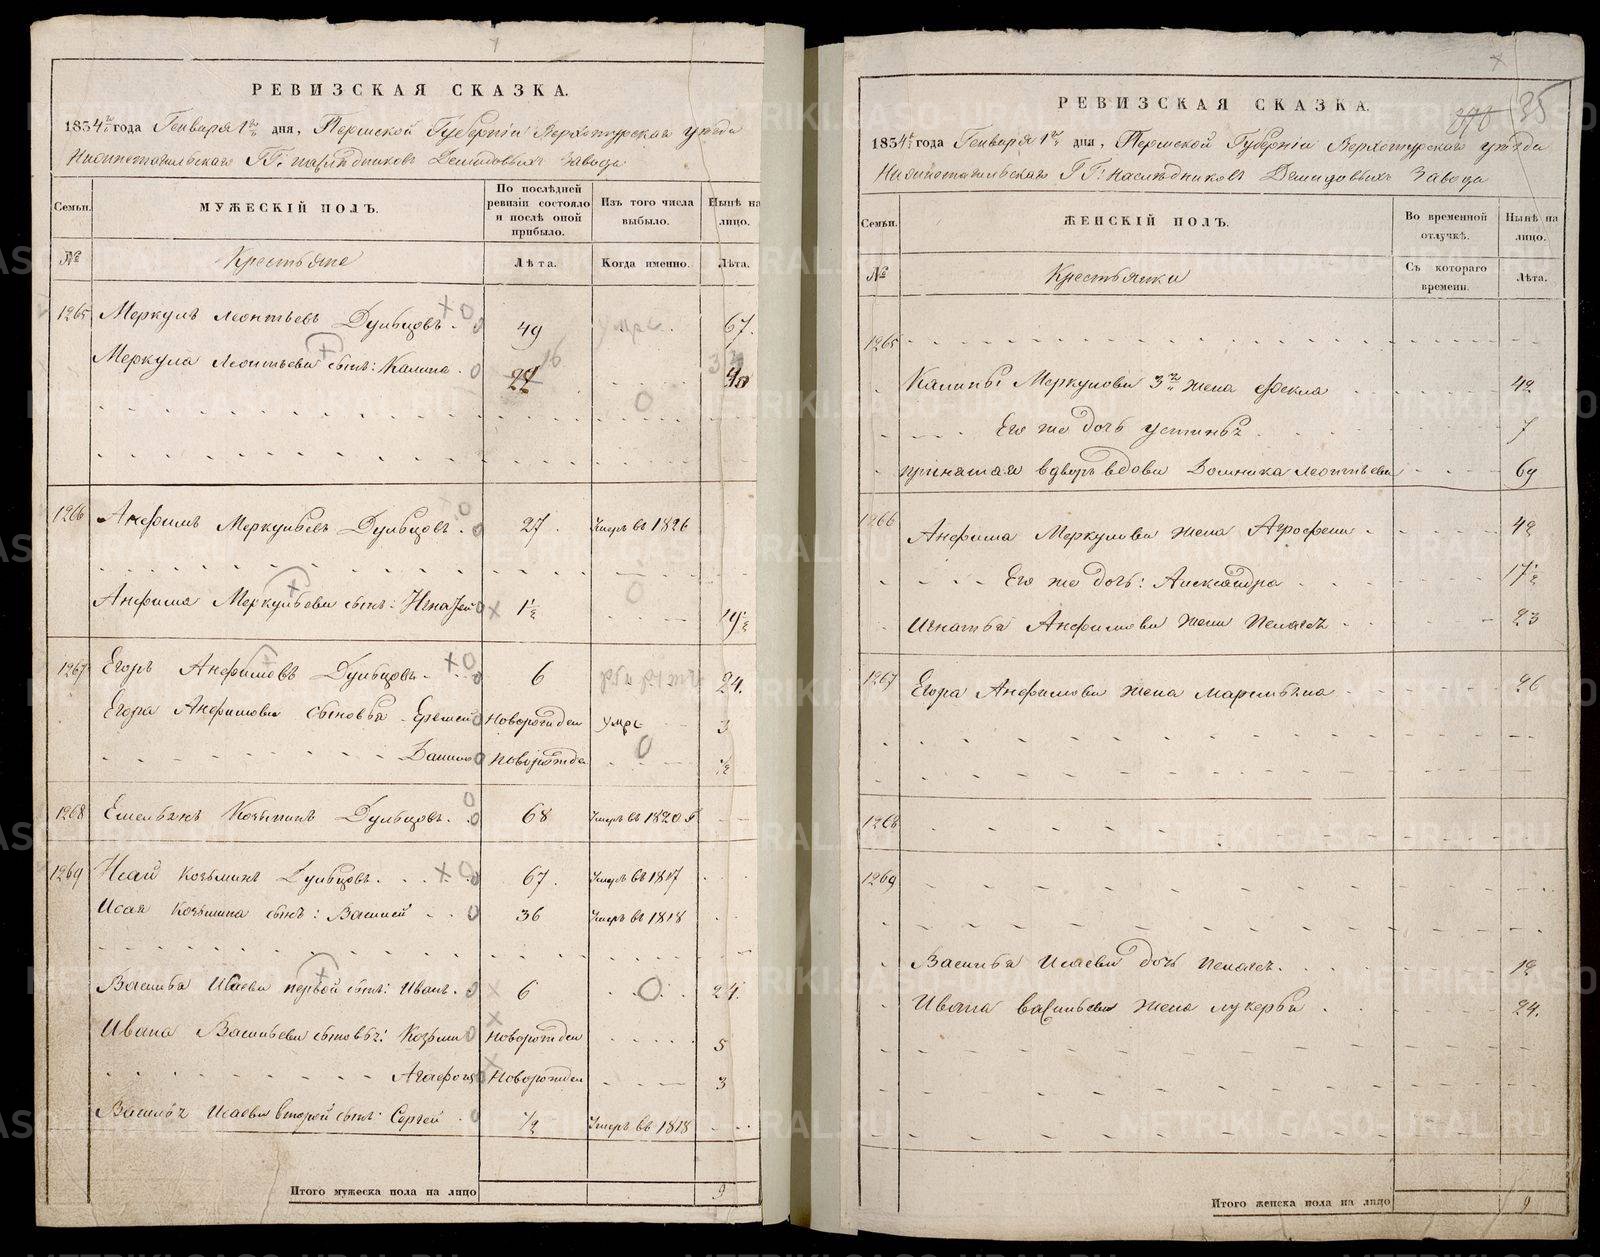 РЕВИЗСКАЯ СКАЗКА.
1834 года Генваря 1 дня, Пермской Губернии Верхотурскаго уезда
Нижнетагильскаго ГГ: наследников Демидовых завода
Семьи. МУЖЕСКІЙ ПОЛЪ. По послѣдней ревизіи состояло и послѣ оной прибыло. Изъ того числа выбыло. Нынѣ на лицо.
№ Крестьяне Лѣта. Когда именно. Лѣта.
1265 Меркулъ Леонтьевъ Дульцовъ. 49 умре. 67.
Меркула Леонтьева сынъ: Калина. 16
1266 Анфимъ Меркульевъ Дульцовъ. 27. Умеръ въ 1826
Анфима Меркульева сынъ: Игнатей 1½ 19½
1267 Егоръ Анфимовъ Дульцовъ. 6 24.
Егора Анфимова сыновья Еремей Новорожден умре 3
Новорожден ½
1268 Емельянъ Козьминъ Дульцовъ. 68 Умеръ въ 1820 г
1269 Исай Козьминъ Дульцовъ. 67. Умеръ въ 1817
Исая Козьмина сынъ: Василей 36 Умеръ въ 1818
Василья Исаева первой сынъ: Иванъ. 6 24.
Ивана Васильева сыновья: Козьма Новорожден 5
Агафонъ Новорожден 3
Василья Исаева второй сынъ: Сергей ½ Умеръ въ 1818
Итого мужеска пола на лицо 9
35
РЕВИЗСКАЯ СКАЗКА.
1834 года Генваря 1 дня, Пермской Губернии Верхотурскаго уезда
Нижнетагильскаго ГГ: наследниковъ Демидовыхъ завода
Семьи. ЖЕНСКІЙ ПОЛЪ. Во временной отлучкѣ. Нынѣ на лицо.
№ Крестьянки Съ котораго времени. Лѣта.
1265
Калины Меркулова 3я жена Фекла 42
Его же дочь Устинья 7
принятая в дворъ вдова Домника Леонтьева 69
1266 Анфима Меркулова жена Агрофена 42
Его же дочь: Александра 17½
Игнатья Анфимова жена Пелагея 23
1267 Егора Анфимова жена Маремьяна 26
1268
1269
Василья Исаева дочь Пелагея. 19
Ивана Васильева жена Лукерья 24.
Итого женска пола на лицо 9